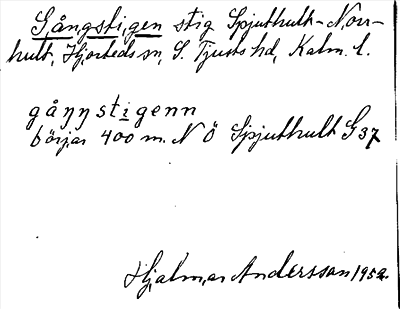 Gångstigen stig Spjuthult-Norr-
hult, Hjorteds sn, S. Tjusts hd, Kalm. l.
gåŋŋstigenn
börjar 400 m. N Ö Spjuthult G37
Hjalmar Andersson 1952.